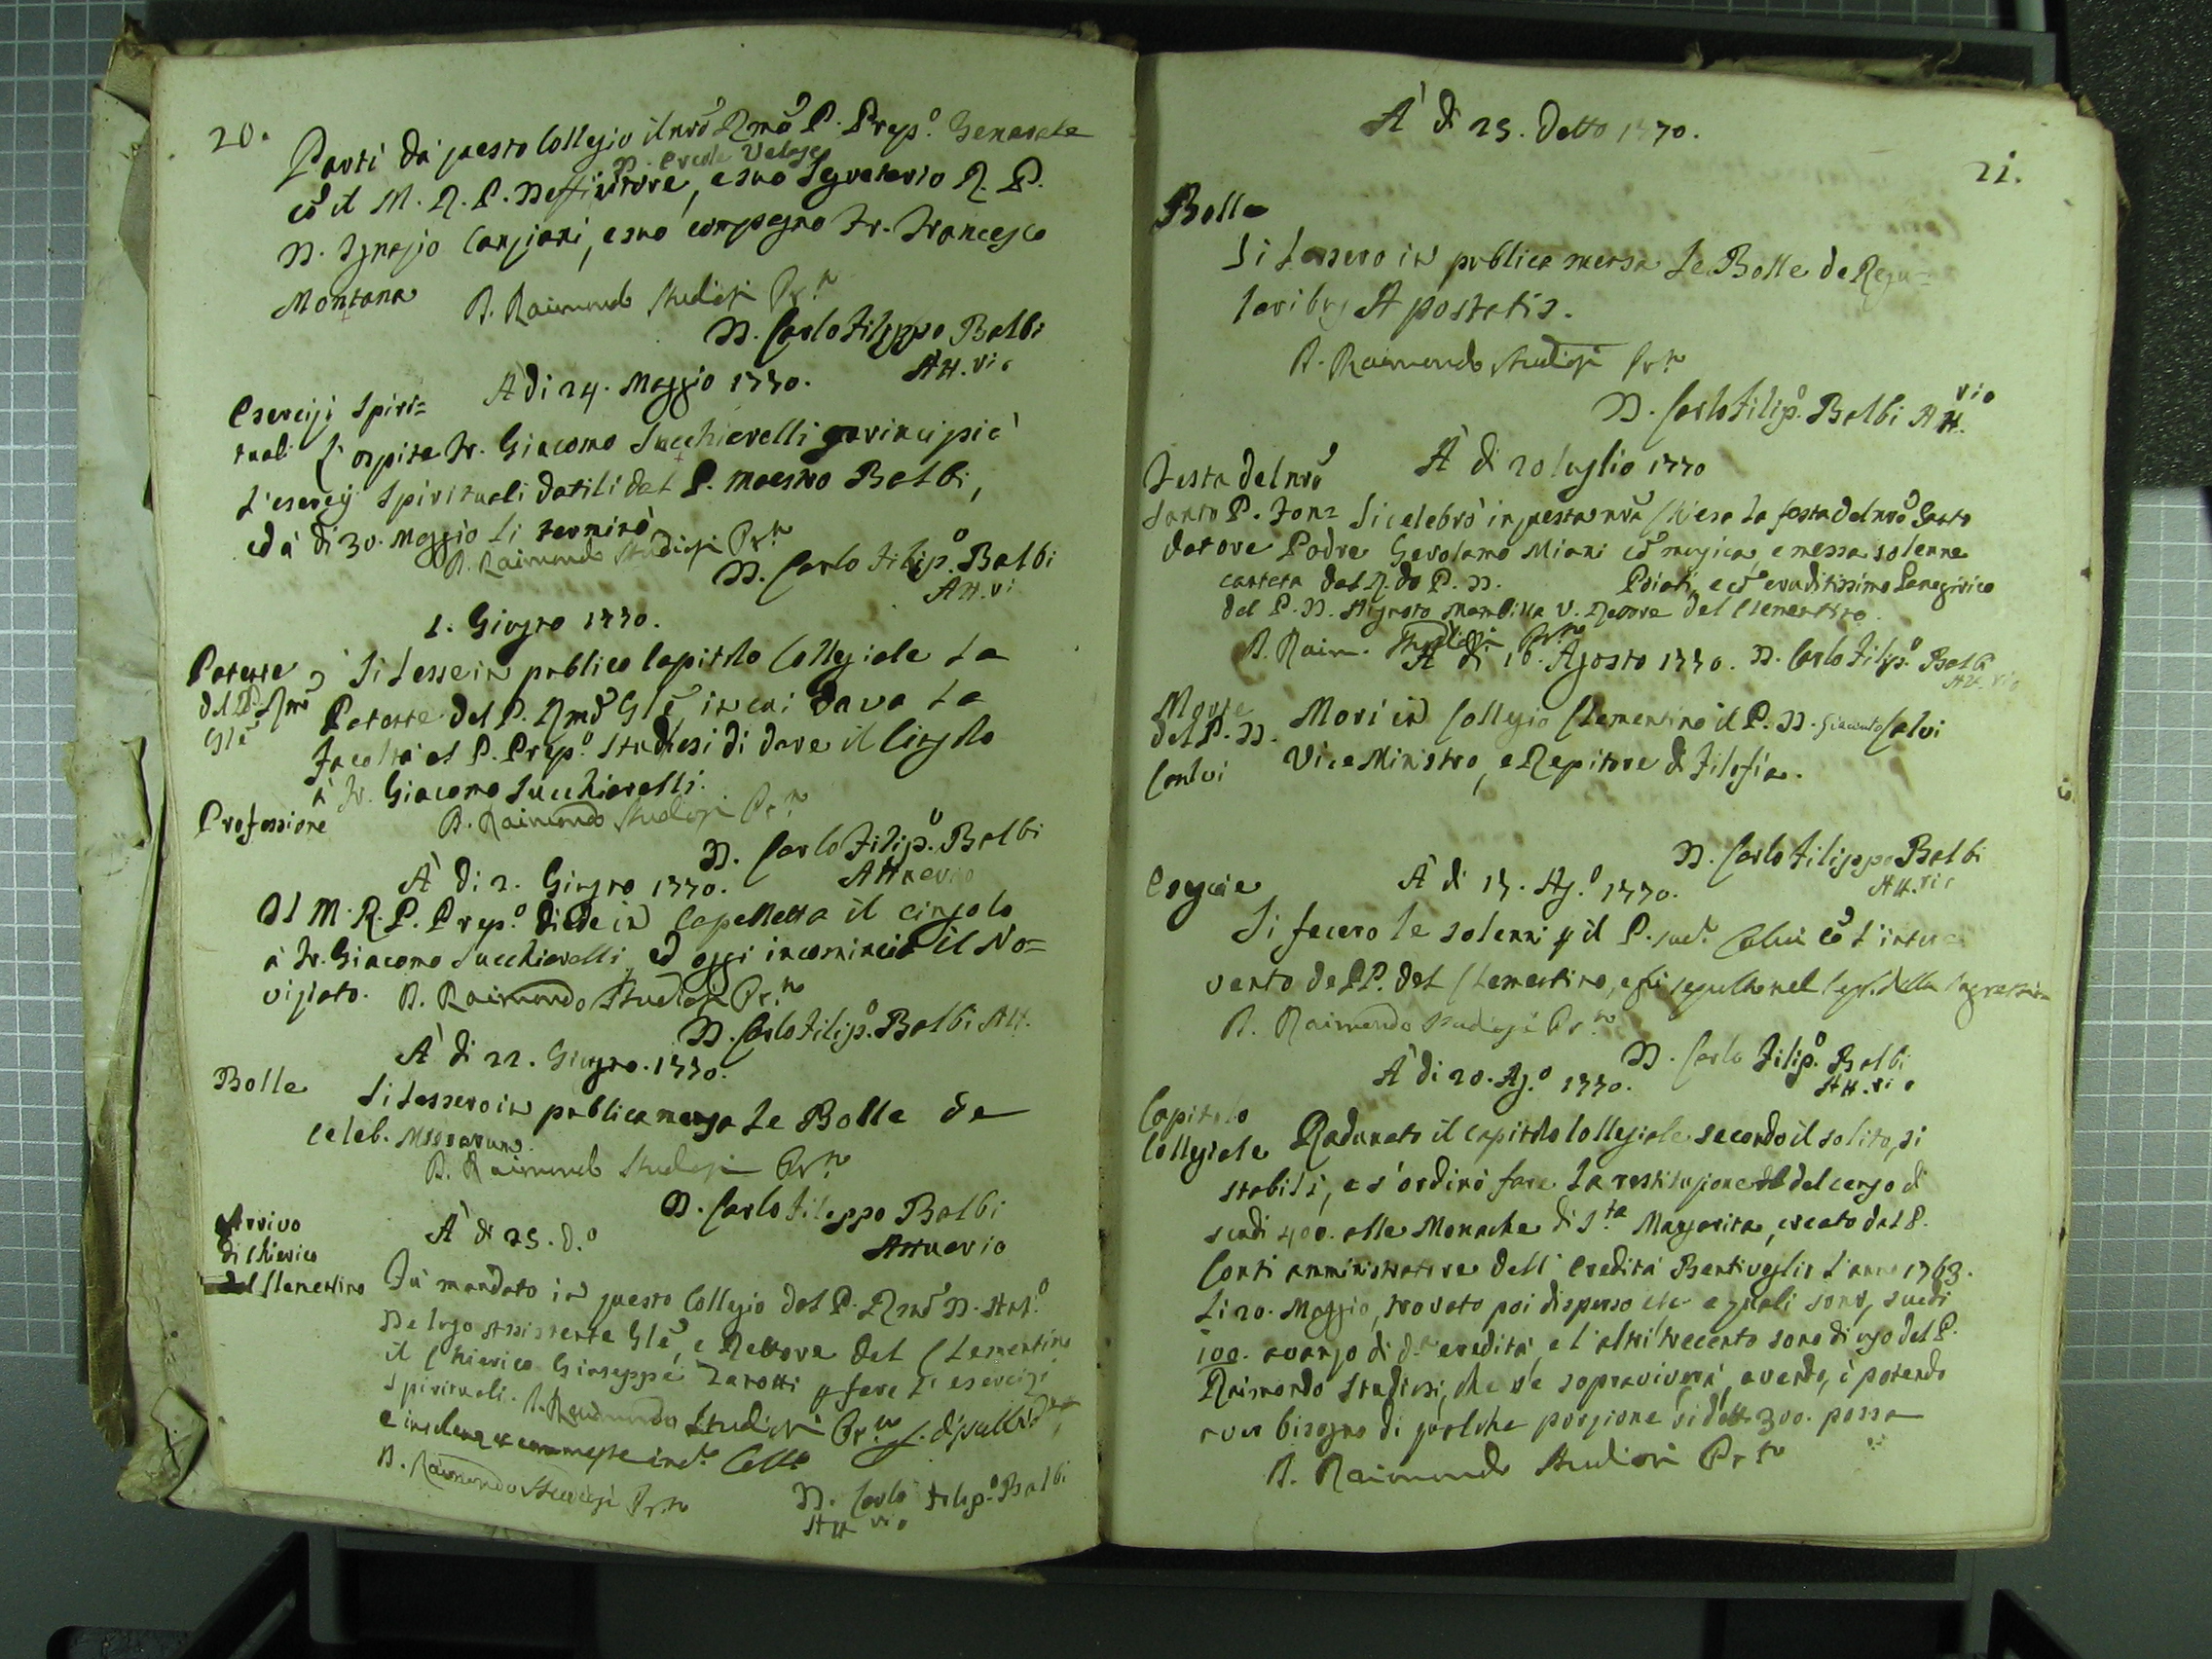 20.
Partì da questo Collegio il nrō Rmō P. Prep.º Generale
D. Ercole
cō il M. R. P. Deffinitore, e suo Segretario R. P.
D. Ignazio Canziani, e suo compagno Fr. Francesco
Montana
D. Raimondo Studiosi
D. Carlo Filippo Balbi
Att.rio
Esercizj Spiri=
tuali
A di 24. Maggio 1770.
L'ospite Fr. Giacomo Succhiarelli principiò
L'esercizj Spirituali datili dal P. Maestro Balbi,
ed à di 30. Maggio Li terminò
D. Raimondo Studiosi
D. Carlo Filip.º Balbi
Att.ri
1. Giugno 1770.
Patente
del P. Rmō
Glē
Si Lesse in publico Capitolo Collegiale La
Patente del P. Rmō Glē, in cui dava La
Facoltà al P. Prep.º Studiosi di dare il Cingolo
à Fr. Giacomo Succhiarelli.
Professione
D. Raimondo Studiosi
D. Carlo Filip.º Balbi
Attuario
À di 2. Giugno 1770.
Il M. R. P. Prep.º diede in Capelletta il cingolo
à Fr. Giacomo Succhiarelli, ed oggi incominciò il No=
viziato. D. Raimondo Studiosi
D. Carlo Filip.º Balbi Att.
À di 22. Giugno. 1770.
Bolle
Si Lessero in publica mensa Le Bolle de
celeb. Missarum.
D. Raimondo Studiosi
D. Carlo Filippo Balbi
Attuario
Arrivo
di Chierico
del Clementino
À di 25. d.º
Fù mandato in questo Collegio dal P. Rmō D.
De Lugo Assistente Glē, e Rettore del Clementino
il Chierico Giuseppe Zarotti p fare L'esercizj
Spirituali. D. Raimondo Studiosi
D. Raimondo Studiosi
D. Carlo Filip.º Balbi
Att.rio
À di 25. Detto 1770.
21.
Bolle
Si Lessero in publica mensa Le Bolle de Regu=
laribus Apostatis.
D. Raimondo Studiosi
D. Carlo Filip.º Balbi Att.rio
À di 20 Luglio 1770
Festa del nrō
Santo P. Fon=
datore
Si celebrò in questa nrā Chiesa La festa del nrō Santo
Padre Gerolamo Miani cō musica, e messa solenne
cantata dal R.do P. D. e cō eruditissimo Panegirico
del P. D. V. Rettore del Clementino.
D. Raim. Studiosi
À di 16. Agosto 1770. D. Carlo Filip.º Balbi
Att.rio
Morte
del P. D.
Calvi
Morì in Collegio Clementino il P. D. Giacinto Calvi
Vice Ministro, e Repitore di Filofia.
D. Carlo Filippo Balbi
Att.rio
Esequie
À di 17. Ag.º 1770.
Si fecero le solenni p il P. sud.º Calvi cō L'inter
vento de PP. del Clementino, e fù sepolto nel
D. Raimondo Studiosi
D. Carlo Filip.º Balbi
Att.rio
À di 20. Ag.º 1770.
Capitolo
Collegiale
Radunato il Capitolo Collegiale secondo il solito, si
stabilì, e s'ordinò fare La restituzione del censo di
scudi 400. alle Monache di S.ta Margarita, creato dal P.
Conti amministratore dell'Eredità Bentivoglio L'anno 1763.
Li 20. Maggio, trovato poi disperso quali sono, scudi
100. avanzo di d.ª eredità, e l'altri trecento sono di uso del P.
Raimondo Studiosi, che se sopraviverà, avendo, ò potendo
aver bisogno di qualche porzione di detti 300. possa
D. Raimondo Studiosi